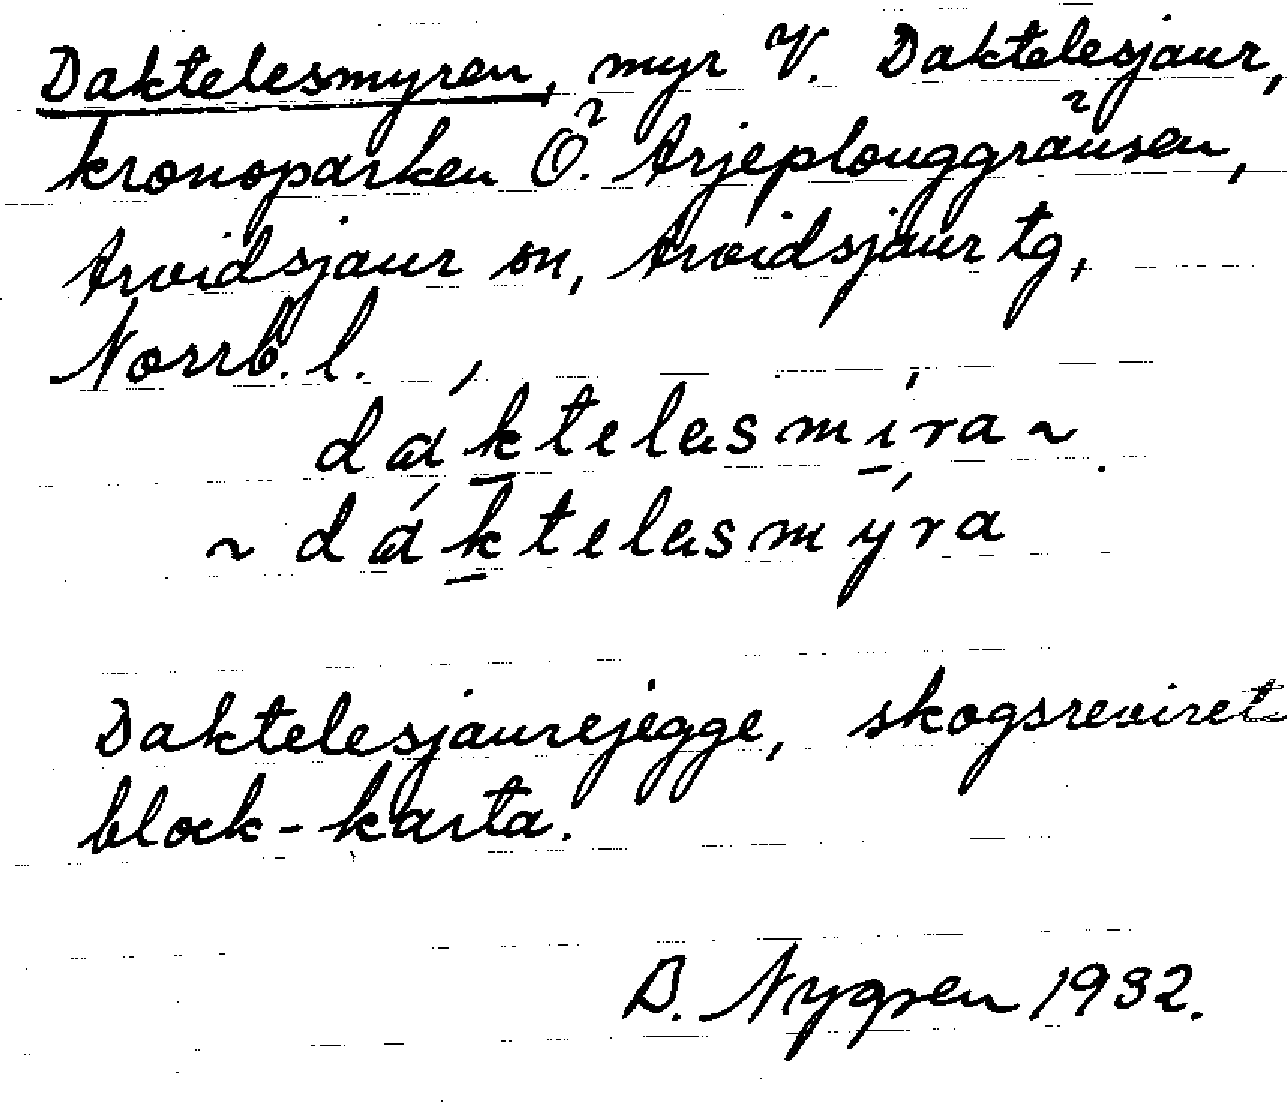 Daktelesmyren, myr V. Daktelesjaur,
kronoparken Ö. Arjeplouggränsen,
Arvidsjaur sn, Arvidsjaur tg,
Norrb. l.
dáktelasmíra ~
~ dáktelasmýra
Daktelesjaurejegge, skogsreviret
block-karta.
B. Nygren 1932.